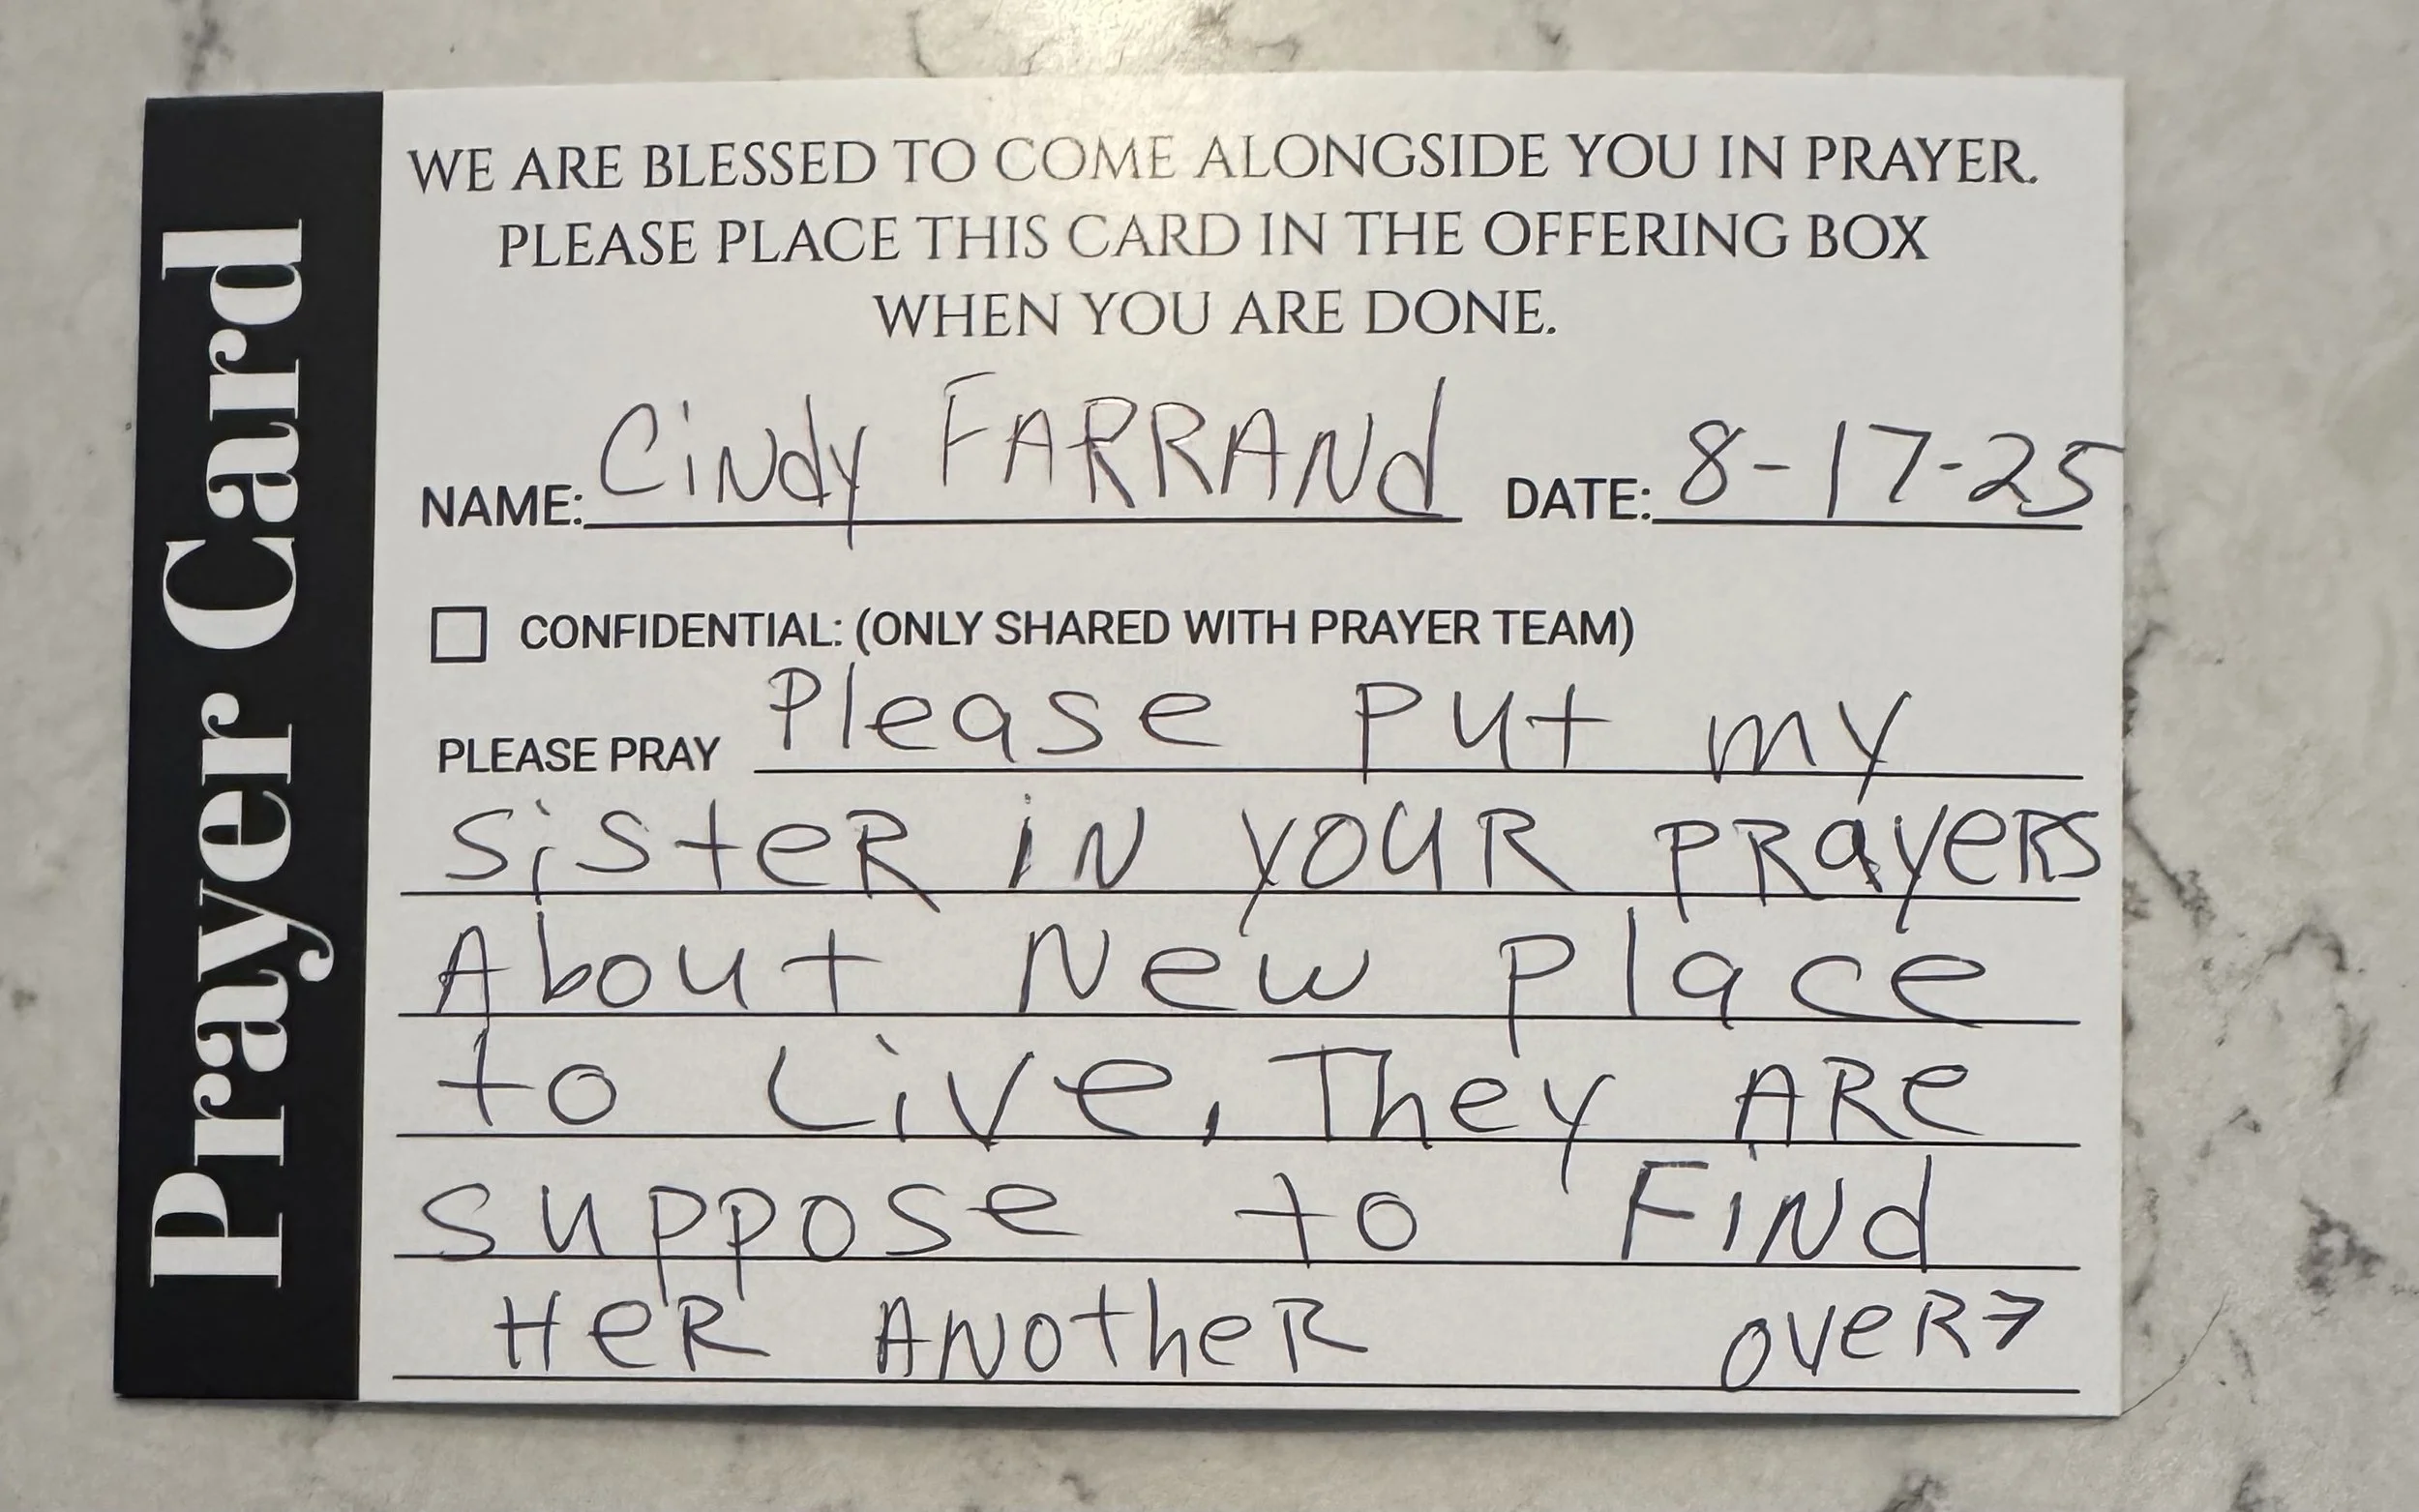 Prayer Card
WE ARE BLESSED TO COME ALONGSIDE YOU IN PRAYER.
PLEASE PLACE THIS CARD IN THE OFFERING BOX
WHEN YOU ARE DONE.
NAME: Cindy FARRANd DATE: 8-17-25
CONFIDENTIAL: (ONLY SHARED WITH PRAYER TEAM)
PLEASE PRAY Please put my
sisteR iN youR PRayeRs
About New place
to Live, They ARe
suppose to FiNd
HeR ANotheR oveR→